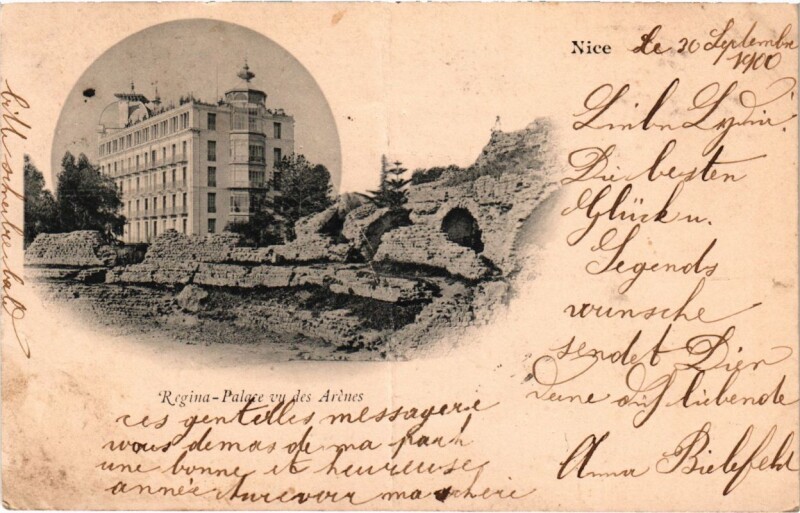 Nice le 20 Septembre
1900
Liebe Lydia!
Die besten
Glück u.
Segends
wünsche
sendet Dier
deine dich liebende
Anna Bielefeld
Regina-Palace vu des Arènes
ces gentilles messagerie
vous demas de ma part
une bonne et heureuse
année Aurevoir ma chérie
bitte schreibe bald